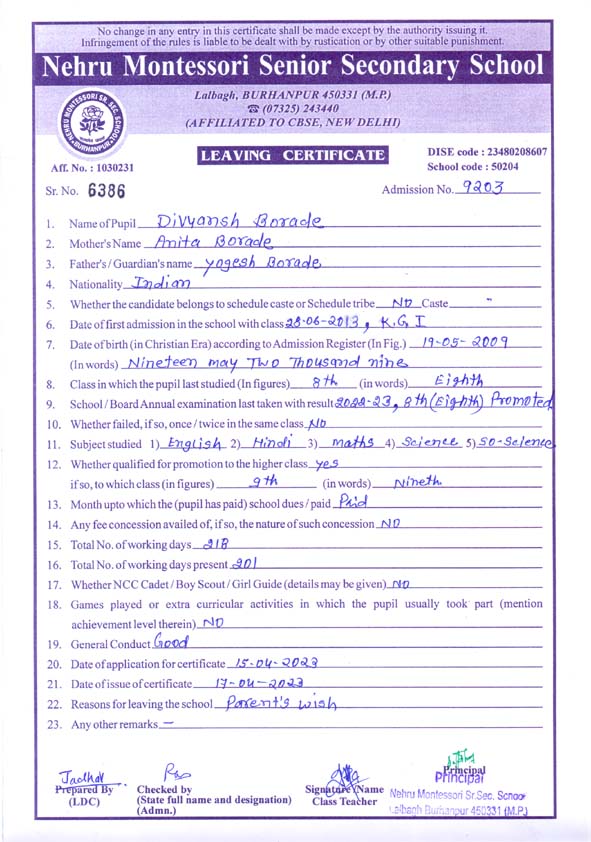 No change in any entry in this certificate shall be made except by the authority issuing it.
Infringement of the rules is liable to be dealt with by rustication or by other suitable punishment.
Nehru Montessori Senior Secondary School
Lalbagh, BURHANPUR 450331 (M.P.)
☎ (07325) 243440
(AFFILIATED TO CBSE, NEW DELHI)
NEHRU MONTESSORI SR. SEC. SCHOOL
BURHANPUR
LEAVING CERTIFICATE
DISE code : 23480208607
Aff. No. : 1030231 School code : 50204
Sr. No. 6386 Admission No. 9203
1. Name of Pupil Divyansh Borade
2. Mother's Name Anita Borade
3. Father's / Guardian's name Yogesh Borade
4. Nationality Indian
5. Whether the candidate belongs to schedule caste or Schedule tribe No Caste "
6. Date of first admission in the school with class 28-06-2013, K.G I
7. Date of birth (in Christian Era) according to Admission Register (In Fig.) 19-05-2009
(In words) Nineteen may Two Thousand nine
8. Class in which the pupil last studied (In figures) 8th (in words) Eighth
9. School / Board Annual examination last taken with result 2022-23, 8th (Eighth) Promoted
10. Whether failed, if so, once / twice in the same class No
11. Subject studied 1) English 2) Hindi 3) maths 4) Science 5) SO-Science
12. Whether qualified for promotion to the higher class yes
if so, to which class (in figures) 9th (in words) Nineth
13. Month upto which the (pupil has paid) school dues / paid Paid
14. Any fee concession availed of, if so, the nature of such concession NO
15. Total No. of working days 218
16. Total No. of working days present 201
17. Whether NCC Cadet / Boy Scout / Girl Guide (details may be given) NO
18. Games played or extra curricular activities in which the pupil usually took part (mention
achievement level therein) NO
19. General Conduct Good
20. Date of application for certificate 15-04-2023
21. Date of issue of certificate 17-04-2023
22. Reasons for leaving the school Parent's wish
23. Any other remarks —
Prepared By
(LDC)
Checked by
(State full name and designation)
(Admn.)
Signature Name
Class Teacher
Principal
Principal
Nehru Montessori Sr.Sec. School
Lalbagh Burhanpur 450331 (M.P.)